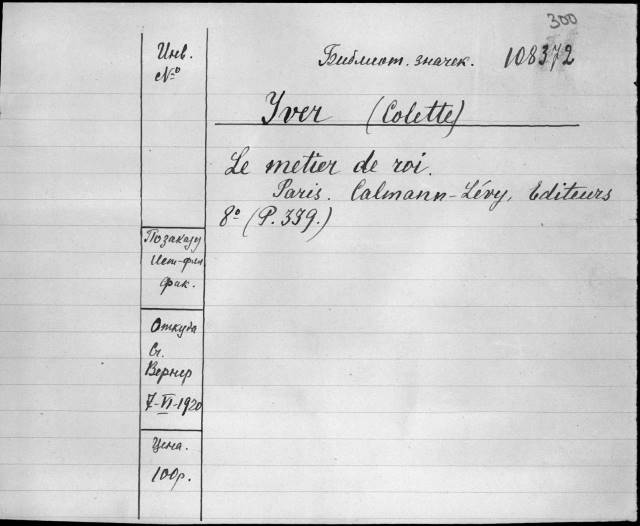 300
Инв.
№
Библиот. значек. 108372
Yver (Colette)
Le metier de roi.
Paris. Calmann-Lévy, Editeurs
8° (P. 339.)
По заказу
Ист-фил
фак.
Откуда
Вернер
7-VI-1920
Цена.
100р.